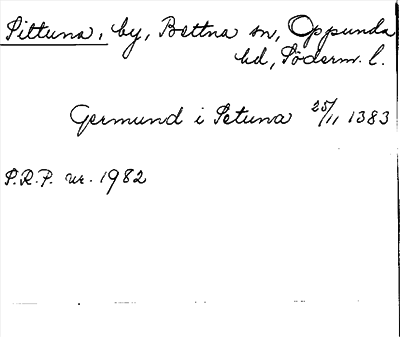 Sittuna, by, Bettna sn, Oppunda
hd, Söderm. l.
Germund i Setuna 25/11 1383
S.R.P. nr. 1982